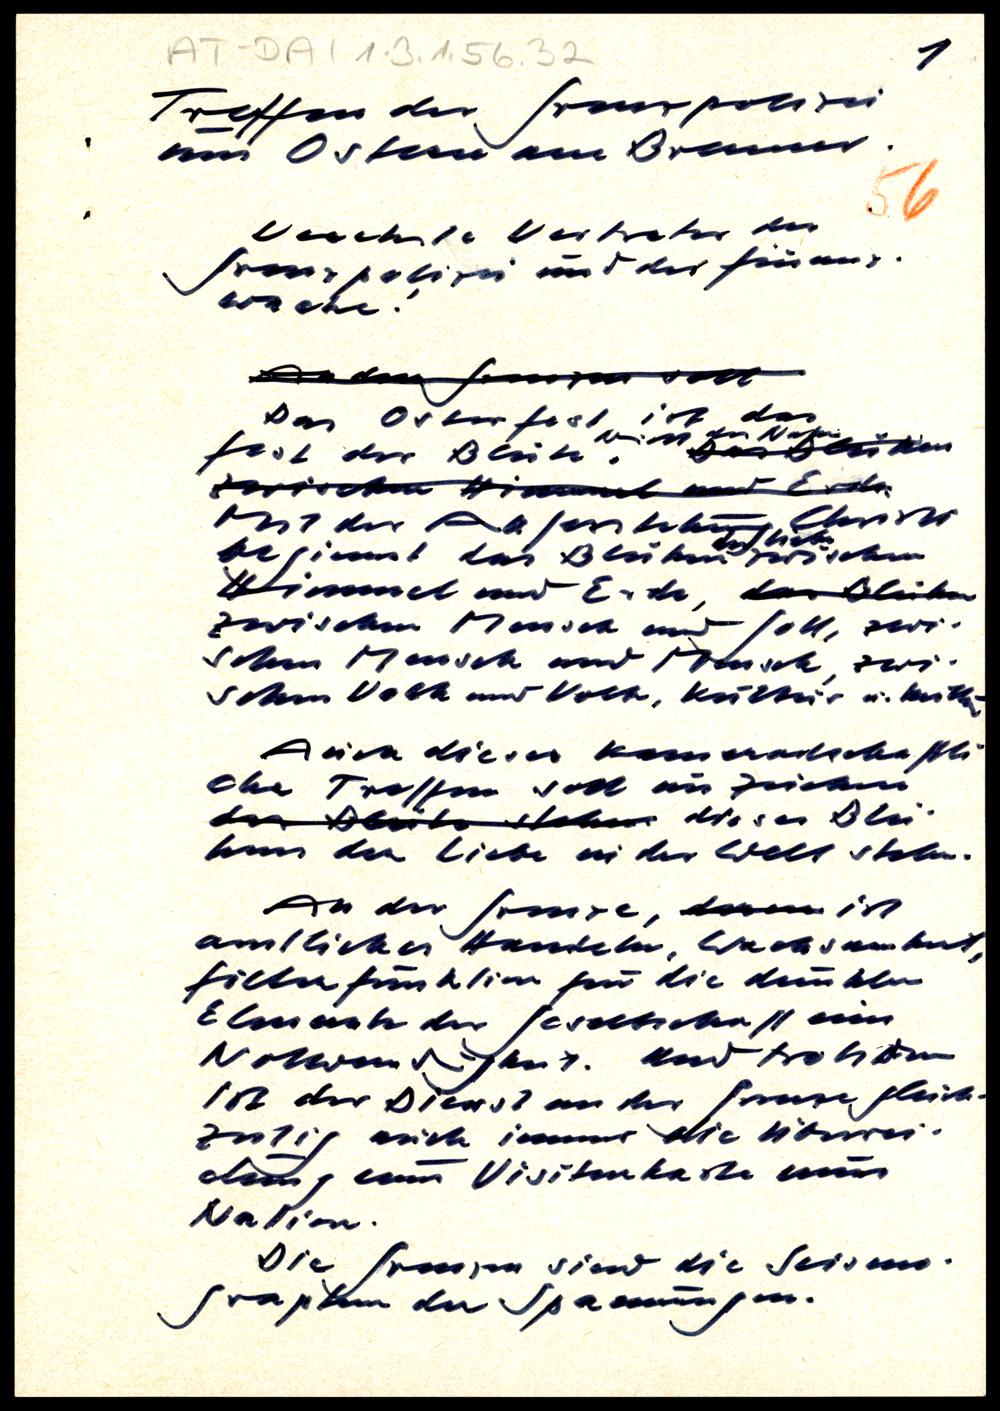 AT-DAI 1.3.1.56.32
1
Treffen der Grenzpolizei
um Ostern am Brenner.
56
Verehrte Vertreter der
Grenzpolizei und der Finanz-
wache!
An den Grenzen soll
Das Osterfest ist das
der Natur
Fest der Blüte. Das Blühen
zwischen Himmel und Erde.
Mit der Auferstehung Christi
der Liebe
beginnt das Blühen zwischen
Himmel und Erde, das Blühen
zwischen Mensch und Gott, zwi-
schen Mensch und Mensch, zwi-
schen Volk und Volk, Kultur u. Kultur.
Auch dieses kameradschaftli
che Treffen soll im Zeichen
der Blüte stehen dieses Blü-
hens der Liebe in der Welt stehn.
An der Grenze, ist
amtliches Handeln, Wachsamkeit,
Filterfunktion für die dunklen
Elemente der Gesellschaft eine
Notwendigkeit. Und trotzdem
ist der Dienst an der Grenze gleich-
zeitig auch immer die Überrei-
chung einer Visitenkarte einer
Nation.
Die Grenzen sind die Seismo-
graphen der Spannungen.